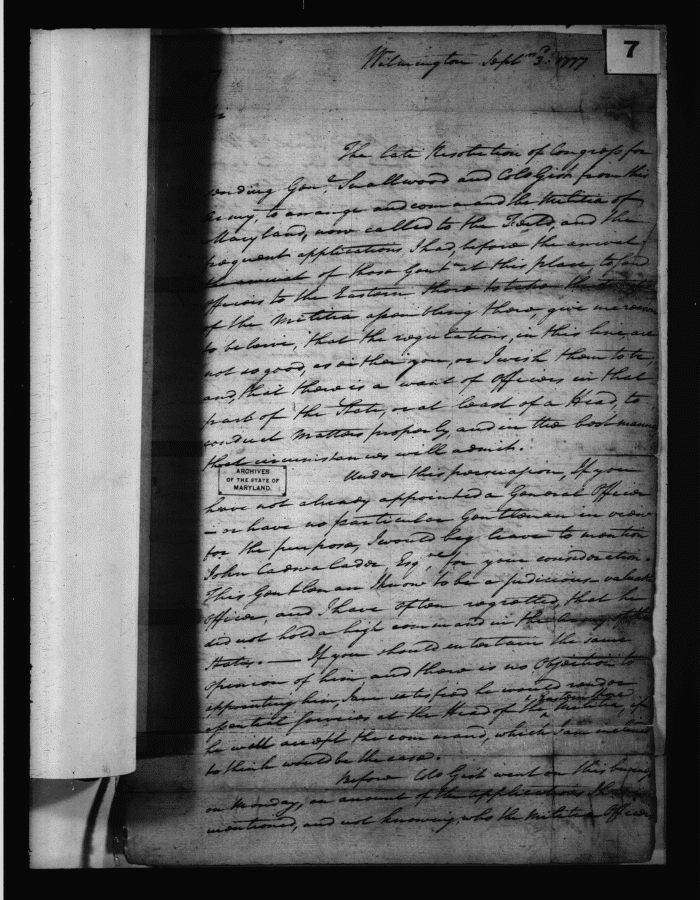 7
Wilmington Septr 3d 1777
The late Resolution of Congress for
sending Genl Smallwood and Colo Gist from this
Army, to arrange and command the Militia of
Maryland, now called to the Field, and the
frequent applications I had, before the arrival
of those Gentn at this place, to send
Officers to the Eastern Shore to take the
of the Militia assembling there, give me reason
to beleive, that the regulations, in this line, are
not so good, as either you, or I wish them to be,
and, that there is a want of Officers in that
part of the State, or at least of a Head, to
conduct matters properly, and in the best manner
that circumstances will admit.
ARCHIVES
OF THE STATE OF
MARYLAND.
Under this persuasion, If you
have not already appointed a General Officer
— or have no particular Gentleman in view
for the purpose, I would beg leave to mention
John Cadwalader, Esqr for your consideration.
This Gentleman I know to be a judicious – valuable
Officer, and I have often regretted, that he
did not hold a high command in the Army of the
States. — If you should entertain the same
opinion of him, and there is no Objection to
appointing him, I am satisfied he would render
essential services at the Head of the Eastern Shore Militia, if
he will accept the command, which I am inclined
to think would be the case.
Before Colo Gist went on this business
on Monday, on account of the applications I have
mentioned, and not knowing, who the Militia Officers